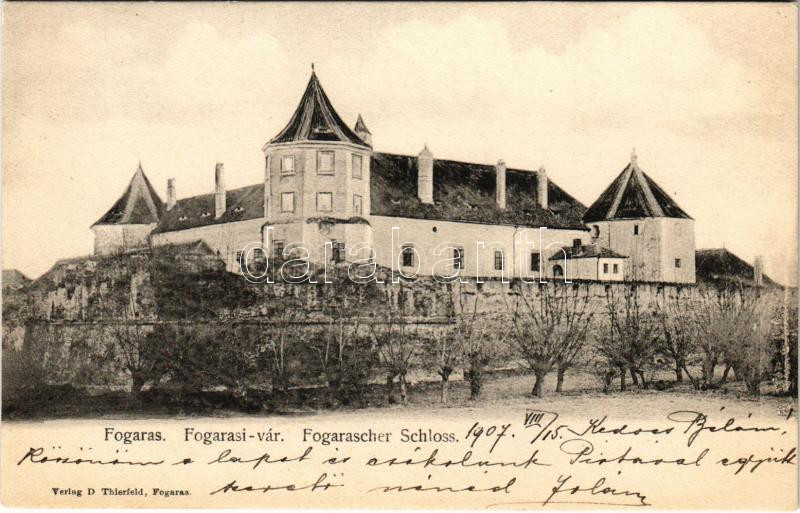 darabanth
Fogaras. Fogarasi-vár. Fogarascher Schloss. 1907. VIII/15. Kedves Bélám,
Köszönöm a lapot és csókolunk Pistával együtt
szerető nénéd Jolán
Verlag D Thierfeld, Fogaras.